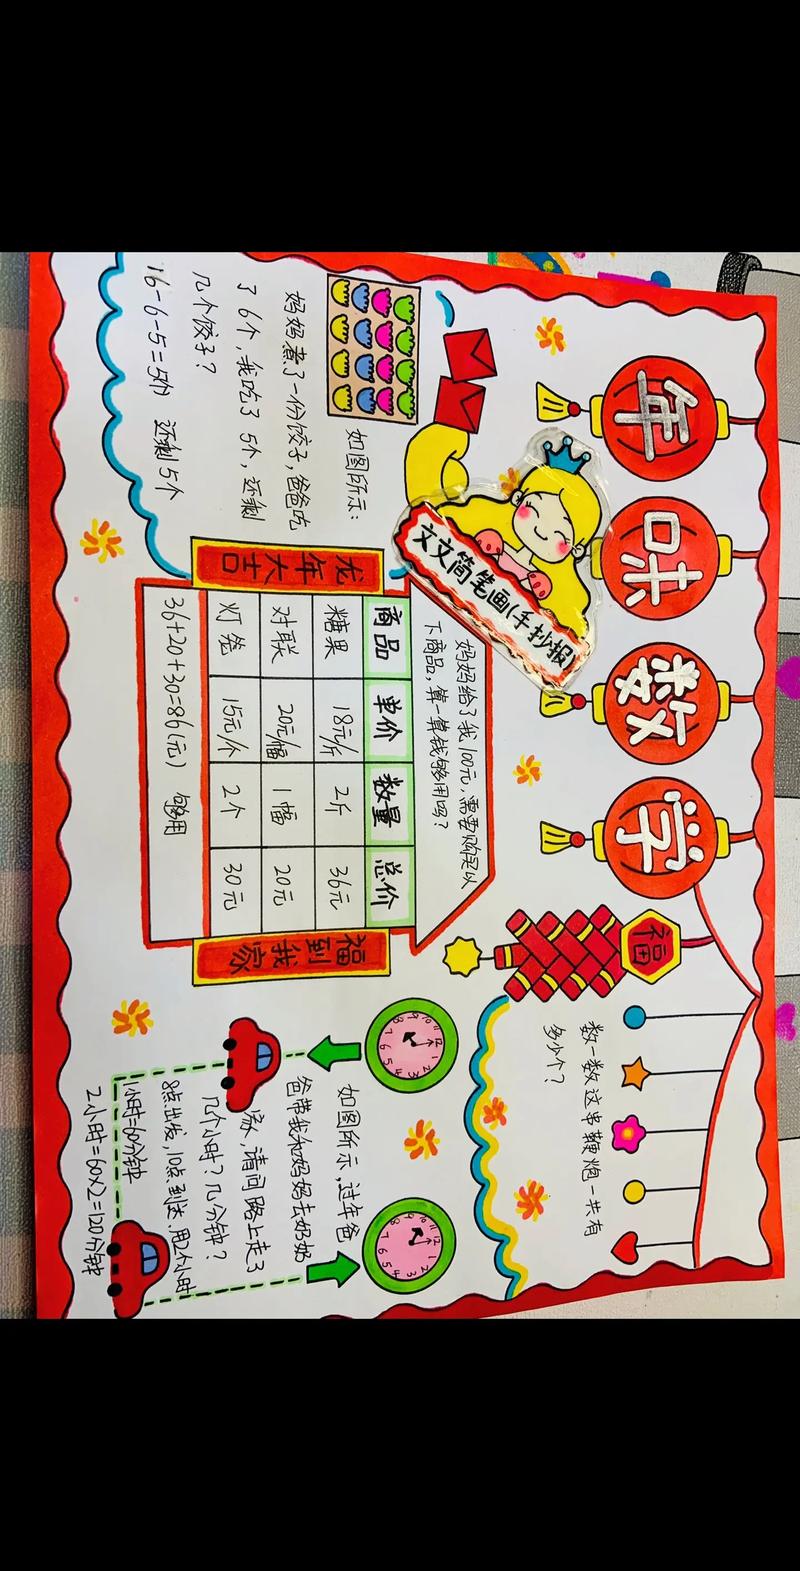 年味数学
福
文文简笔画(手抄报)
如图所示:
妈妈煮了一份饺子,爸爸吃
了6个,我吃了5个,还剩
几个饺子?
16-6-5=5(个) 还剩5个
妈妈给了我100元,需要购买以
下商品,算一算钱够用吗?
龙年大吉
商品 单价 数量 总价
糖果 18元/斤 2斤 36元
对联 20元/幅 1幅 20元
灯笼 15元/个 2个 30元
36+20+30=86(元) 够用
福到我家
数一数这串鞭炮一共有
多少个?
如图所示,过年爸
爸带我和妈妈去奶奶
家,请问路上走了
几个小时?几分钟?
8点出发,10点到达.用2个小时
1小时=60分钟
2小时=60×2=120分钟